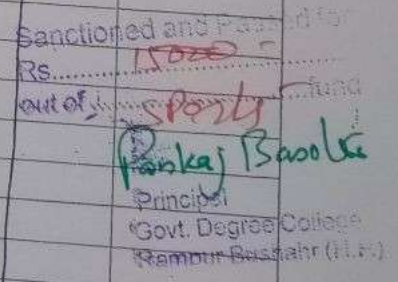 Sanctioned and Passed for
Rs.......15000.......
out of.......sports.......fund
Pankaj Basolte
Principal
Govt. Degree College
Rampur Bushahr (H.P.)